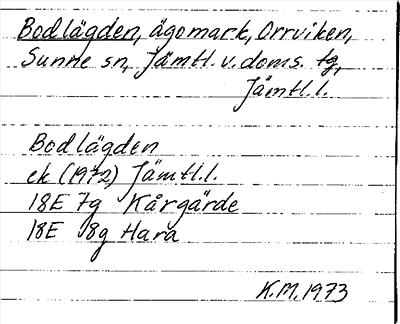 Bodlägden, ägomark, Orrviken,
Sunne sn, Jämtl. v. doms. tg,
Jämtl.l.
Bodlägden
ek (1972) Jämtl.l.
18E 7g Kårgärde
18E 8g Hara
K.M. 1973